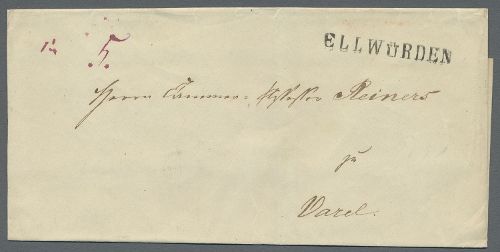 ELLWÜRDEN
5.
Herrn Cammer- Assessor Reiners
zu
Varel.